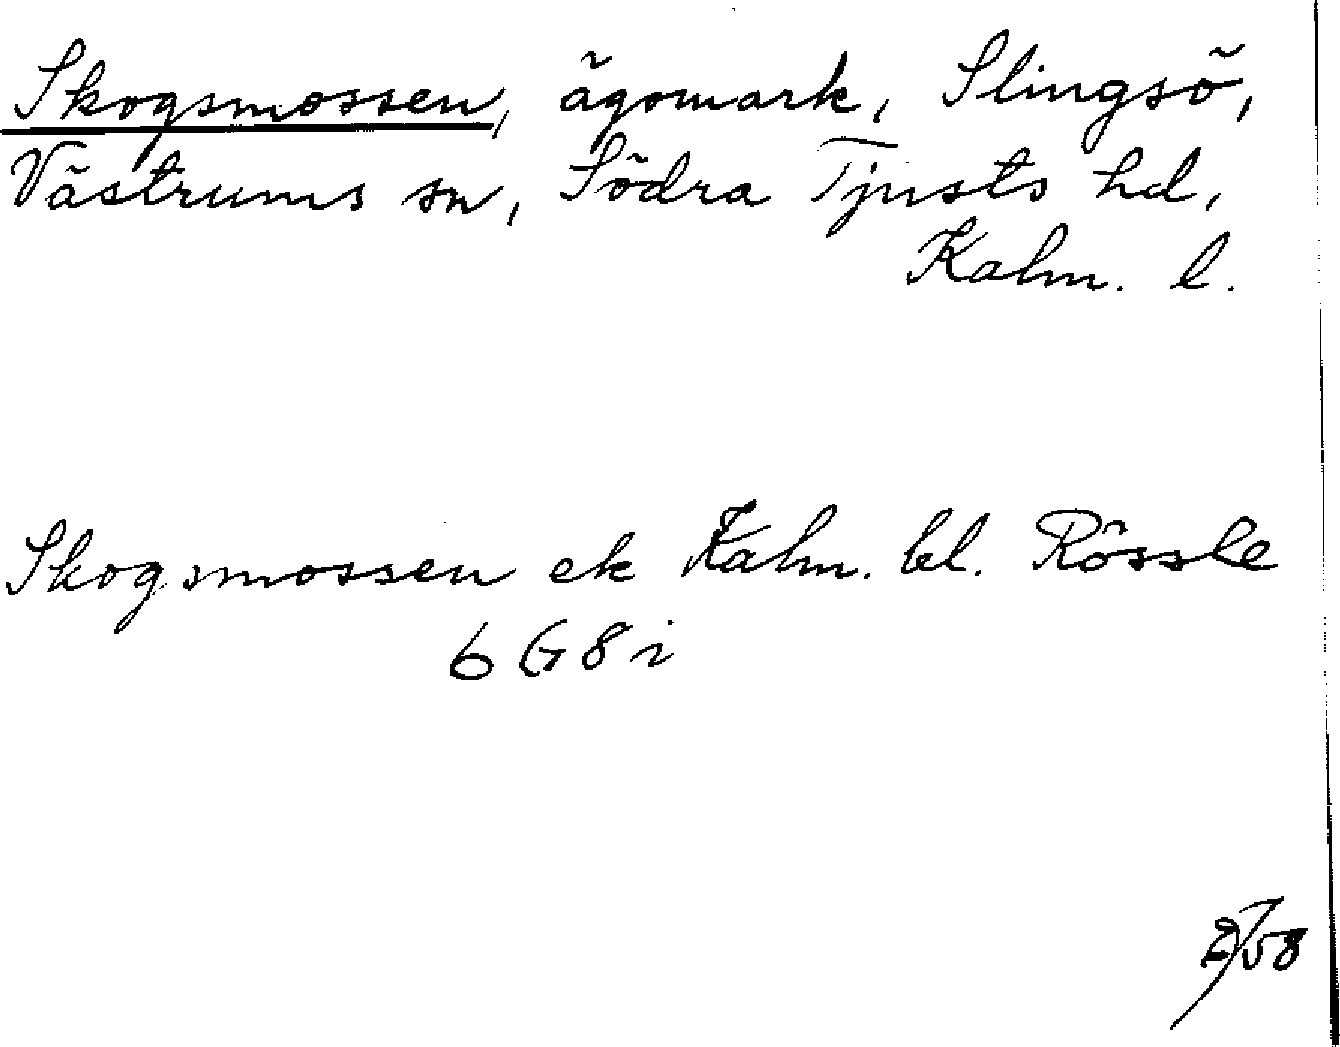 Skogsmossen, ägomark, Slingsö,
Västrums sn, Södra Tjusts hd,
Kalm. l.
Skogsmossen ek Kalm. bl. Rössle
6 G 8 i